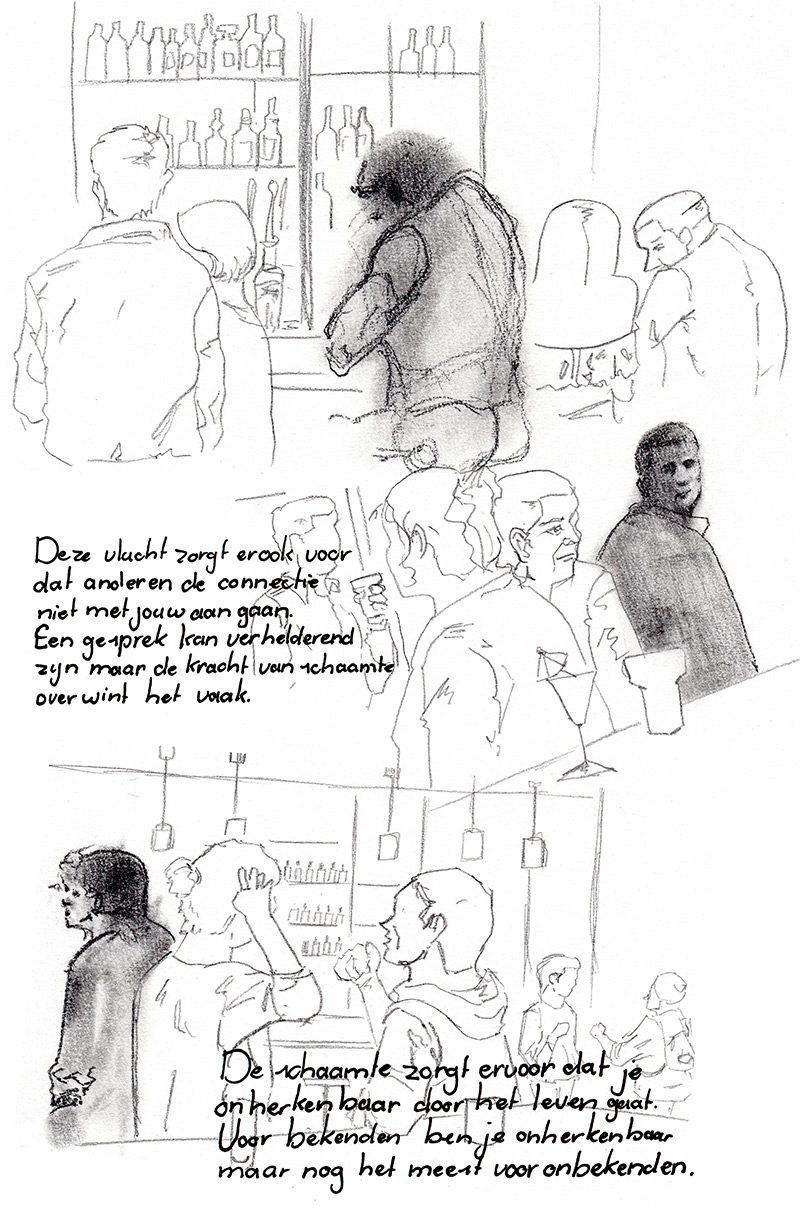 Deze vlucht zorgt er ook voor
dat anderen de connectie
niet met jouw aan gaan.
Een gesprek kan verhelderend
zijn maar de kracht van schaamte
overwint het vaak.
De schaamte zorgt ervoor dat je
onherkenbaar door het leven gaat.
Voor bekenden ben je onherkenbaar
maar nog het meest voor onbekenden.